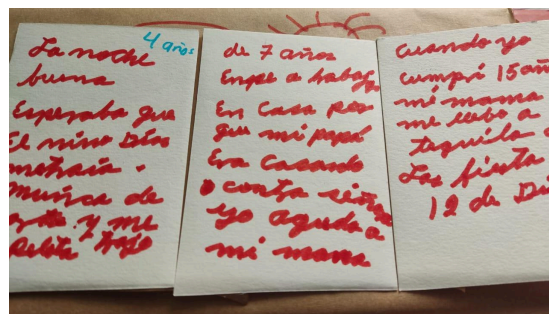 4 años
La noche
buena
Esperaba que
El nino Dios
metraia.
Muñeca de
y me
Pelota trajo
de 7 años
Enpe a
En Casa por
que mi papá
Era Casado
contra
yo aguda a
mi mama
Cuando yo
cumpri 15 añ
mi mama
me llebo a
tequila
Las fiesta
12 de Di